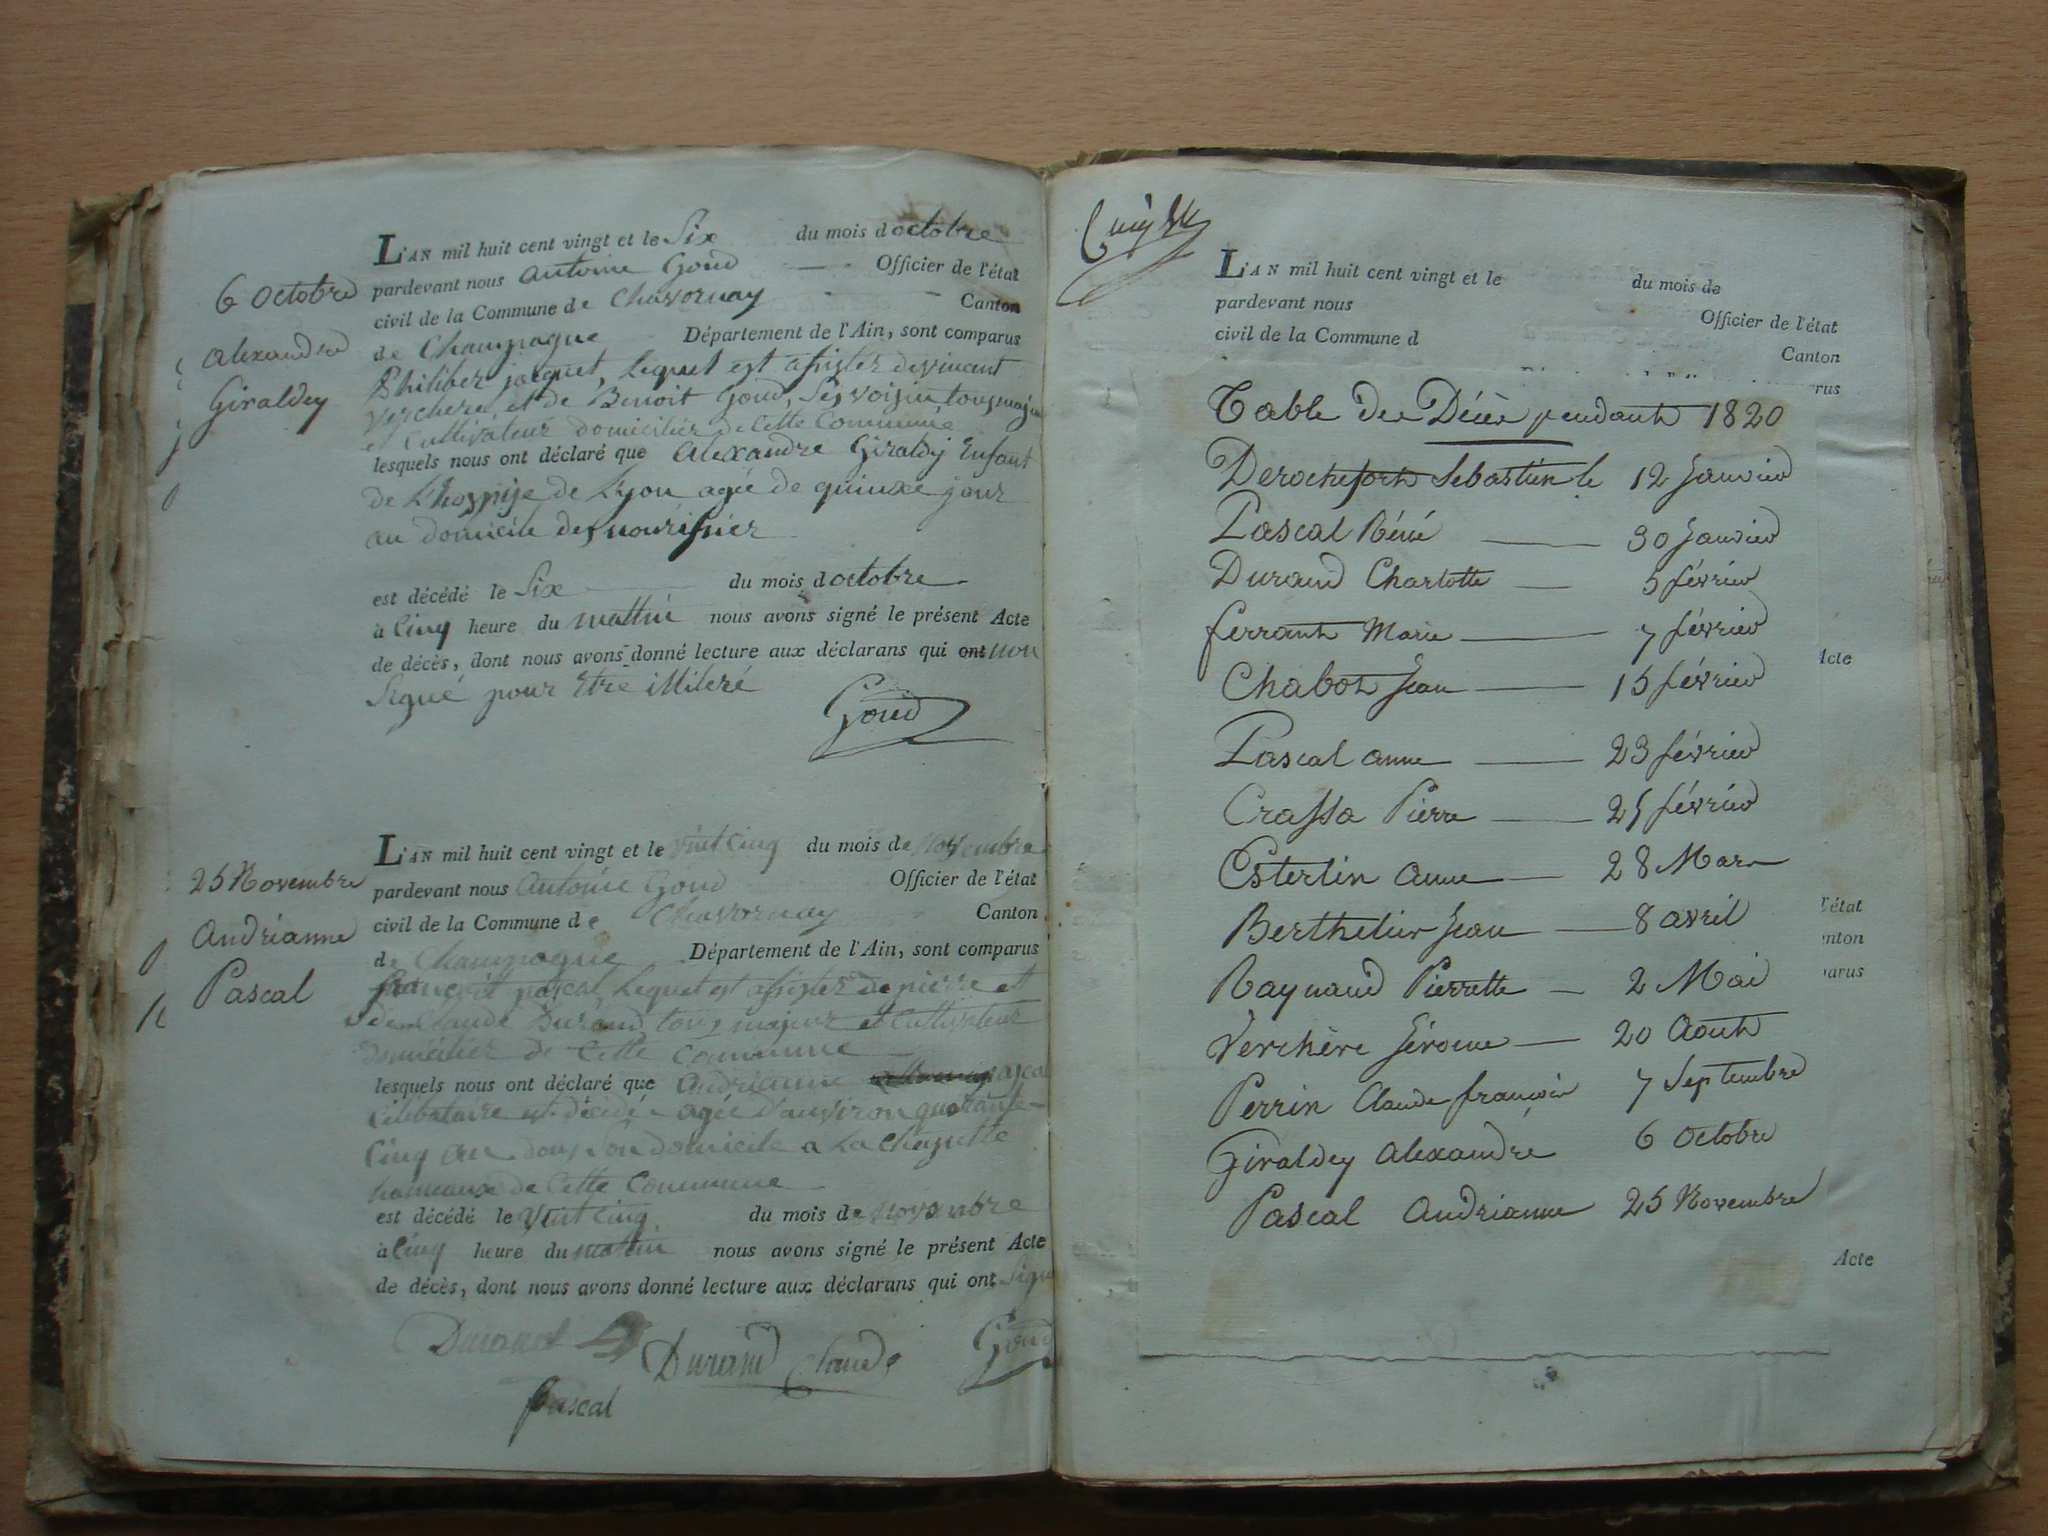 6 Octobre
Alexandre
Giraldey
L'AN mil huit cent vingt et le Six du mois d octobre
pardevant nous antoine Goud Officier de l'état
civil de la Commune de Chavornay Canton
de Champagne Département de l'Ain, sont comparus
Philiber jacquet, Lequel est assister de vincent
Verchere, et de Benoit Goud, Ses voisin tous majeur
et Cultivateur domicilier de Cette Commune
lesquels nous ont déclaré que Alexandre Giraldy Enfant
de L'hospise de Lyon agée de quinxe jour
au domicile des nourissier
est décédé le Six du mois d octobre
à Cinq heure du mattin nous avons signé le présent Acte
de décès, dont nous avons donné lecture aux déclarans qui ont non
Signé pour Etre illiteré
Goud
25 Novembre
Andrianne
Pascal
L'AN mil huit cent vingt et le vint Cinq du mois de Novembre
pardevant nous Antoine Goud Officier de l'état
civil de la Commune de Chavornay Canton
de Champagne Département de l'Ain, sont comparus
françoit pascal, Lequel est assister de pierre et
de Claude Durand, tous majeur et Cultivateur
domicilier de Cette Commune
lesquels nous ont déclaré que Andrianne pascal
Célibataire est décédé agée d'anviron quarante
Cinq an dans Son domicile a La Chapelle
hameaux de Cette Commune
est décédé le Vint Cinq du mois de Novembre
à Cinq heure du matin nous avons signé le présent Acte
de décès, dont nous avons donné lecture aux déclarans qui ont Signé
Durand Durand Claude Goud
Pascal
L'AN mil huit cent vingt et le du mois de
pardevant nous Officier de l'état
civil de la Commune d Canton
rus
Table des Décès pendant 1820
Derochefort Sebastien le 12 Janvier
Pascal Réné 30 Janvier
Durand Charlotte 5 février
ferrant Marie 7 février
Acte
Chabot Jean 15 février
Pascal anne 23 février
Crassa Pierre 25 février
Esterlin Anne 28 Mars
l'état
Berthelier Jean 8 avril
anton
parus
Raynaud Pierrette 2 Mai
Verchère Jérome 20 Aout
Perrin Claude françois 7 Septembre
Giraldey Alexandre 6 Octobre
Pascal Andrianne 25 Novembre
Acte